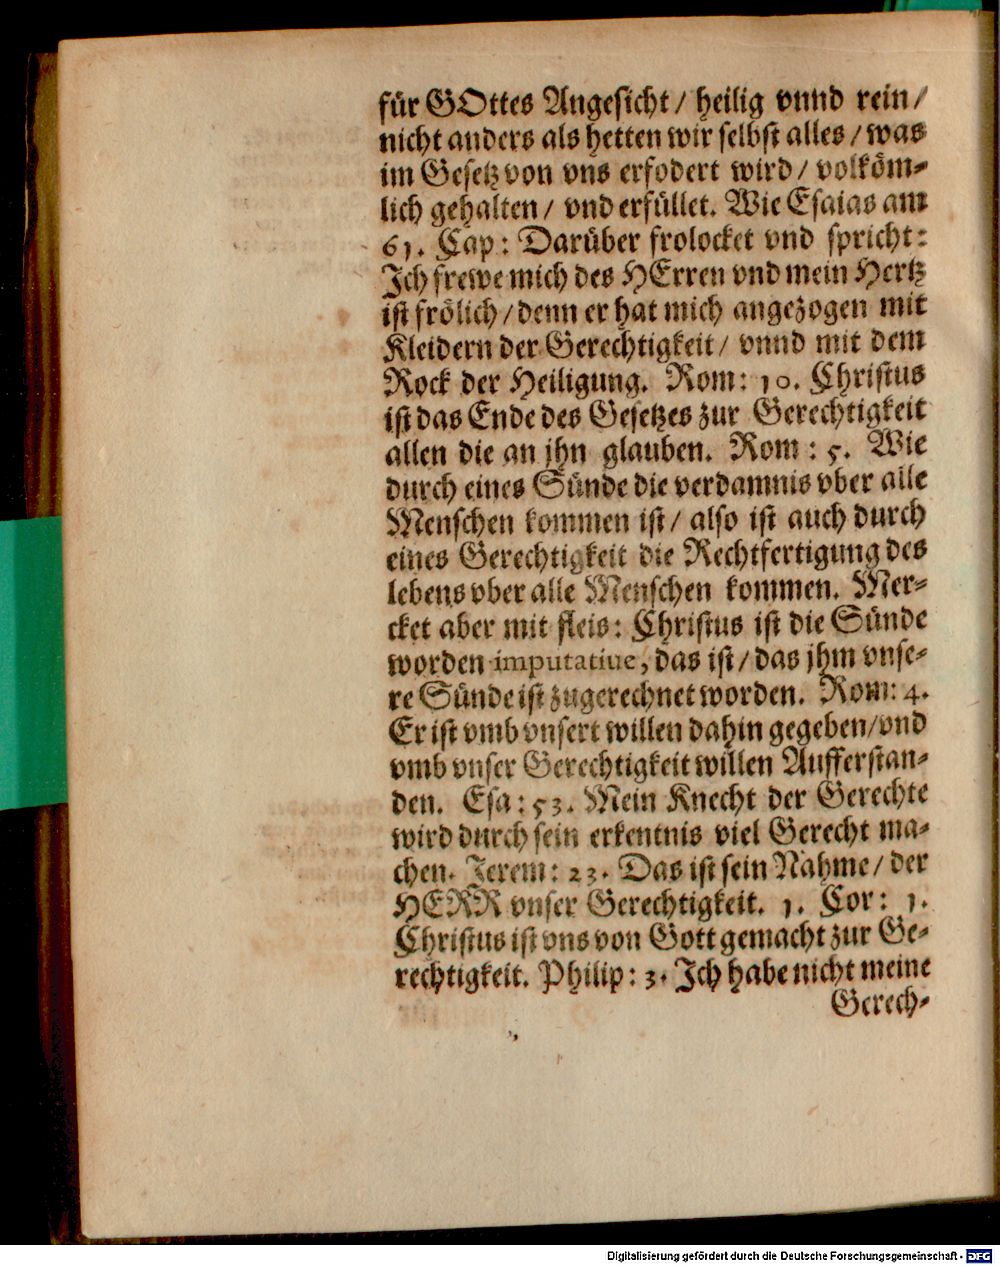 für GOttes Angesicht/ heilig vnnd rein/
nicht anders als hetten wir selbst alles/ was
im Gesetz von vns erfodert wird/ volköm-
lich gehalten/ vnd erfüllet. Wie Esaias am
61. Cap: Darüber frolocket vnd spricht:
Ich frewe mich des HErren vnd mein Hertz
ist frölich/ denn er hat mich angezogen mit
Kleidern der Gerechtigkeit/ vnnd mit dem
Rock der Heiligung. Rom: 10. Christus
ist das Ende des Gesetzes zur Gerechtigkeit
allen die an jhn glauben. Rom: 5. Wie
durch eines Sünde die verdamnis vber alle
Menschen kommen ist/ also ist auch durch
eines Gerechtigkeit die Rechtfertigung des
lebens vber alle Menschen kommen. Mer-
cket aber mit fleis: Christus ist die Sünde
worden imputatiue, das ist/ das jhm vnse-
re Sünde ist zugerechnet worden. Rom: 4.
Er ist vmb vnsert willen dahin gegeben/ vnd
vmb vnser Gerechtigkeit willen Aufferstan-
den. Esa: 53. Mein Knecht der Gerechte
wird durch sein erkentnis viel Gerecht ma-
chen. Jerem: 23. Das ist sein Nahme/ der
HERR vnser Gerechtigkeit. 1. Cor: 1.
Christus ist vns von Gott gemacht zur Ge-
rechtigkeit. Philip: 3. Ich habe nicht meine
Gerech-
Digitalisierung gefördert durch die Deutsche Forschungsgemeinschaft - DFG